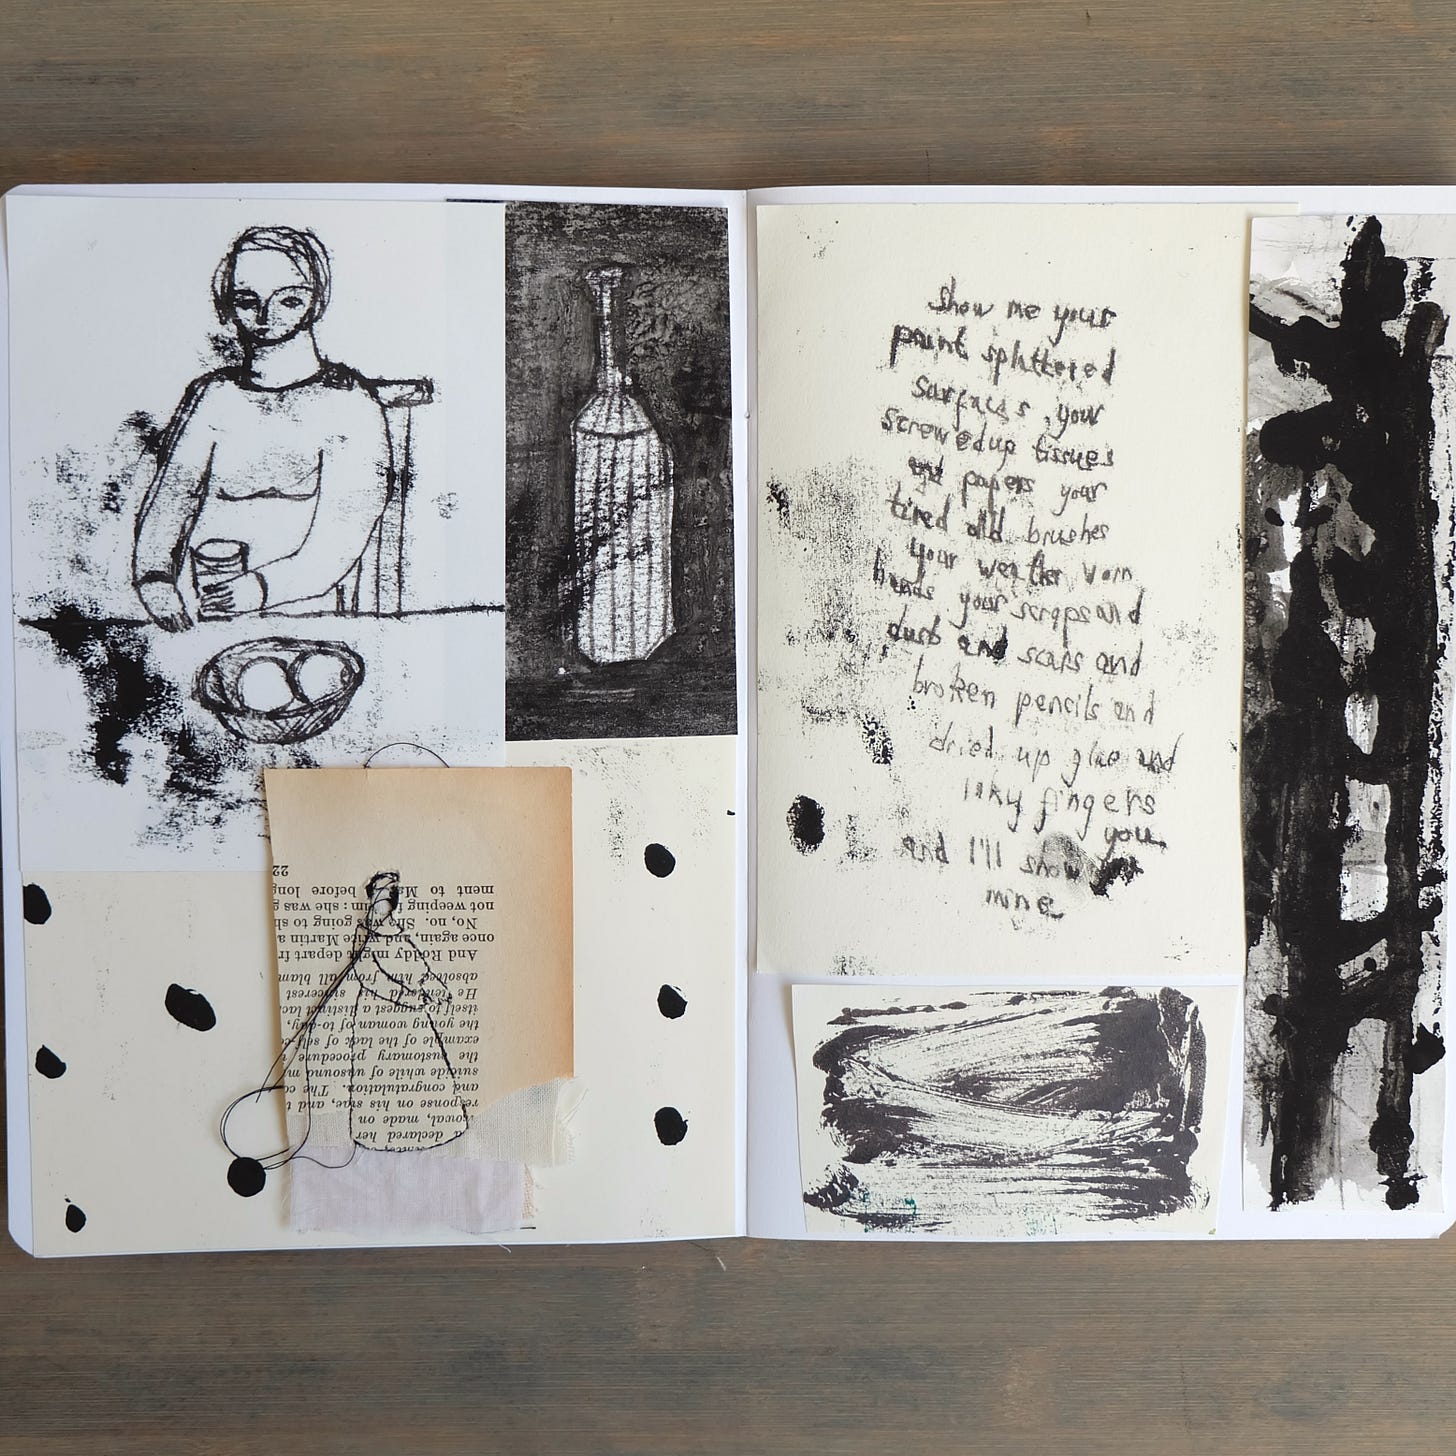 declared her
made on
response on his and
and congratulation. The
suicide while of unsound
the customary procedure
example of the lack of self-
the young woman of to-day,
itself to suggest a distinct
He tendered his sincerest
absolved him from all
And Roddy might depart
once again, and write Martin a
No, no. She was going to
not weeping him: she was
ment to before long
22
show me your
paint splattered
surfaces, your
screwedup tissues
and papers your
tired old brushes
your weather worn
hands your scraps and
and scars and
broken pencils and
dried up glue and
inky fingers
you
and I'll show
mine